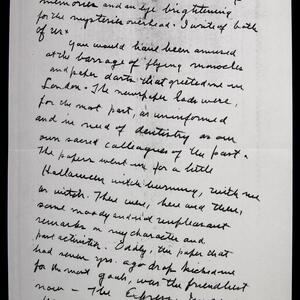 memories and an eye brightening
for the mysteries overhead. I write of both
of us.
You would have been amused
at the barrage of flying monocles
and paper darts that greeted me in
London. The newspaper lads were,
for the most part, as uninformed
and in need of dentistry as our
own sacred colleagues of the past.
The papers went in for a little
Halloween witch burning, with me
as witch. There were, here and there,
some moody and unpleasant
remarks on my character and
past activities. Oddly, the paper that
had seven yrs. ago drop kicked me
for the most goals, was the friendliest
now - The Express.